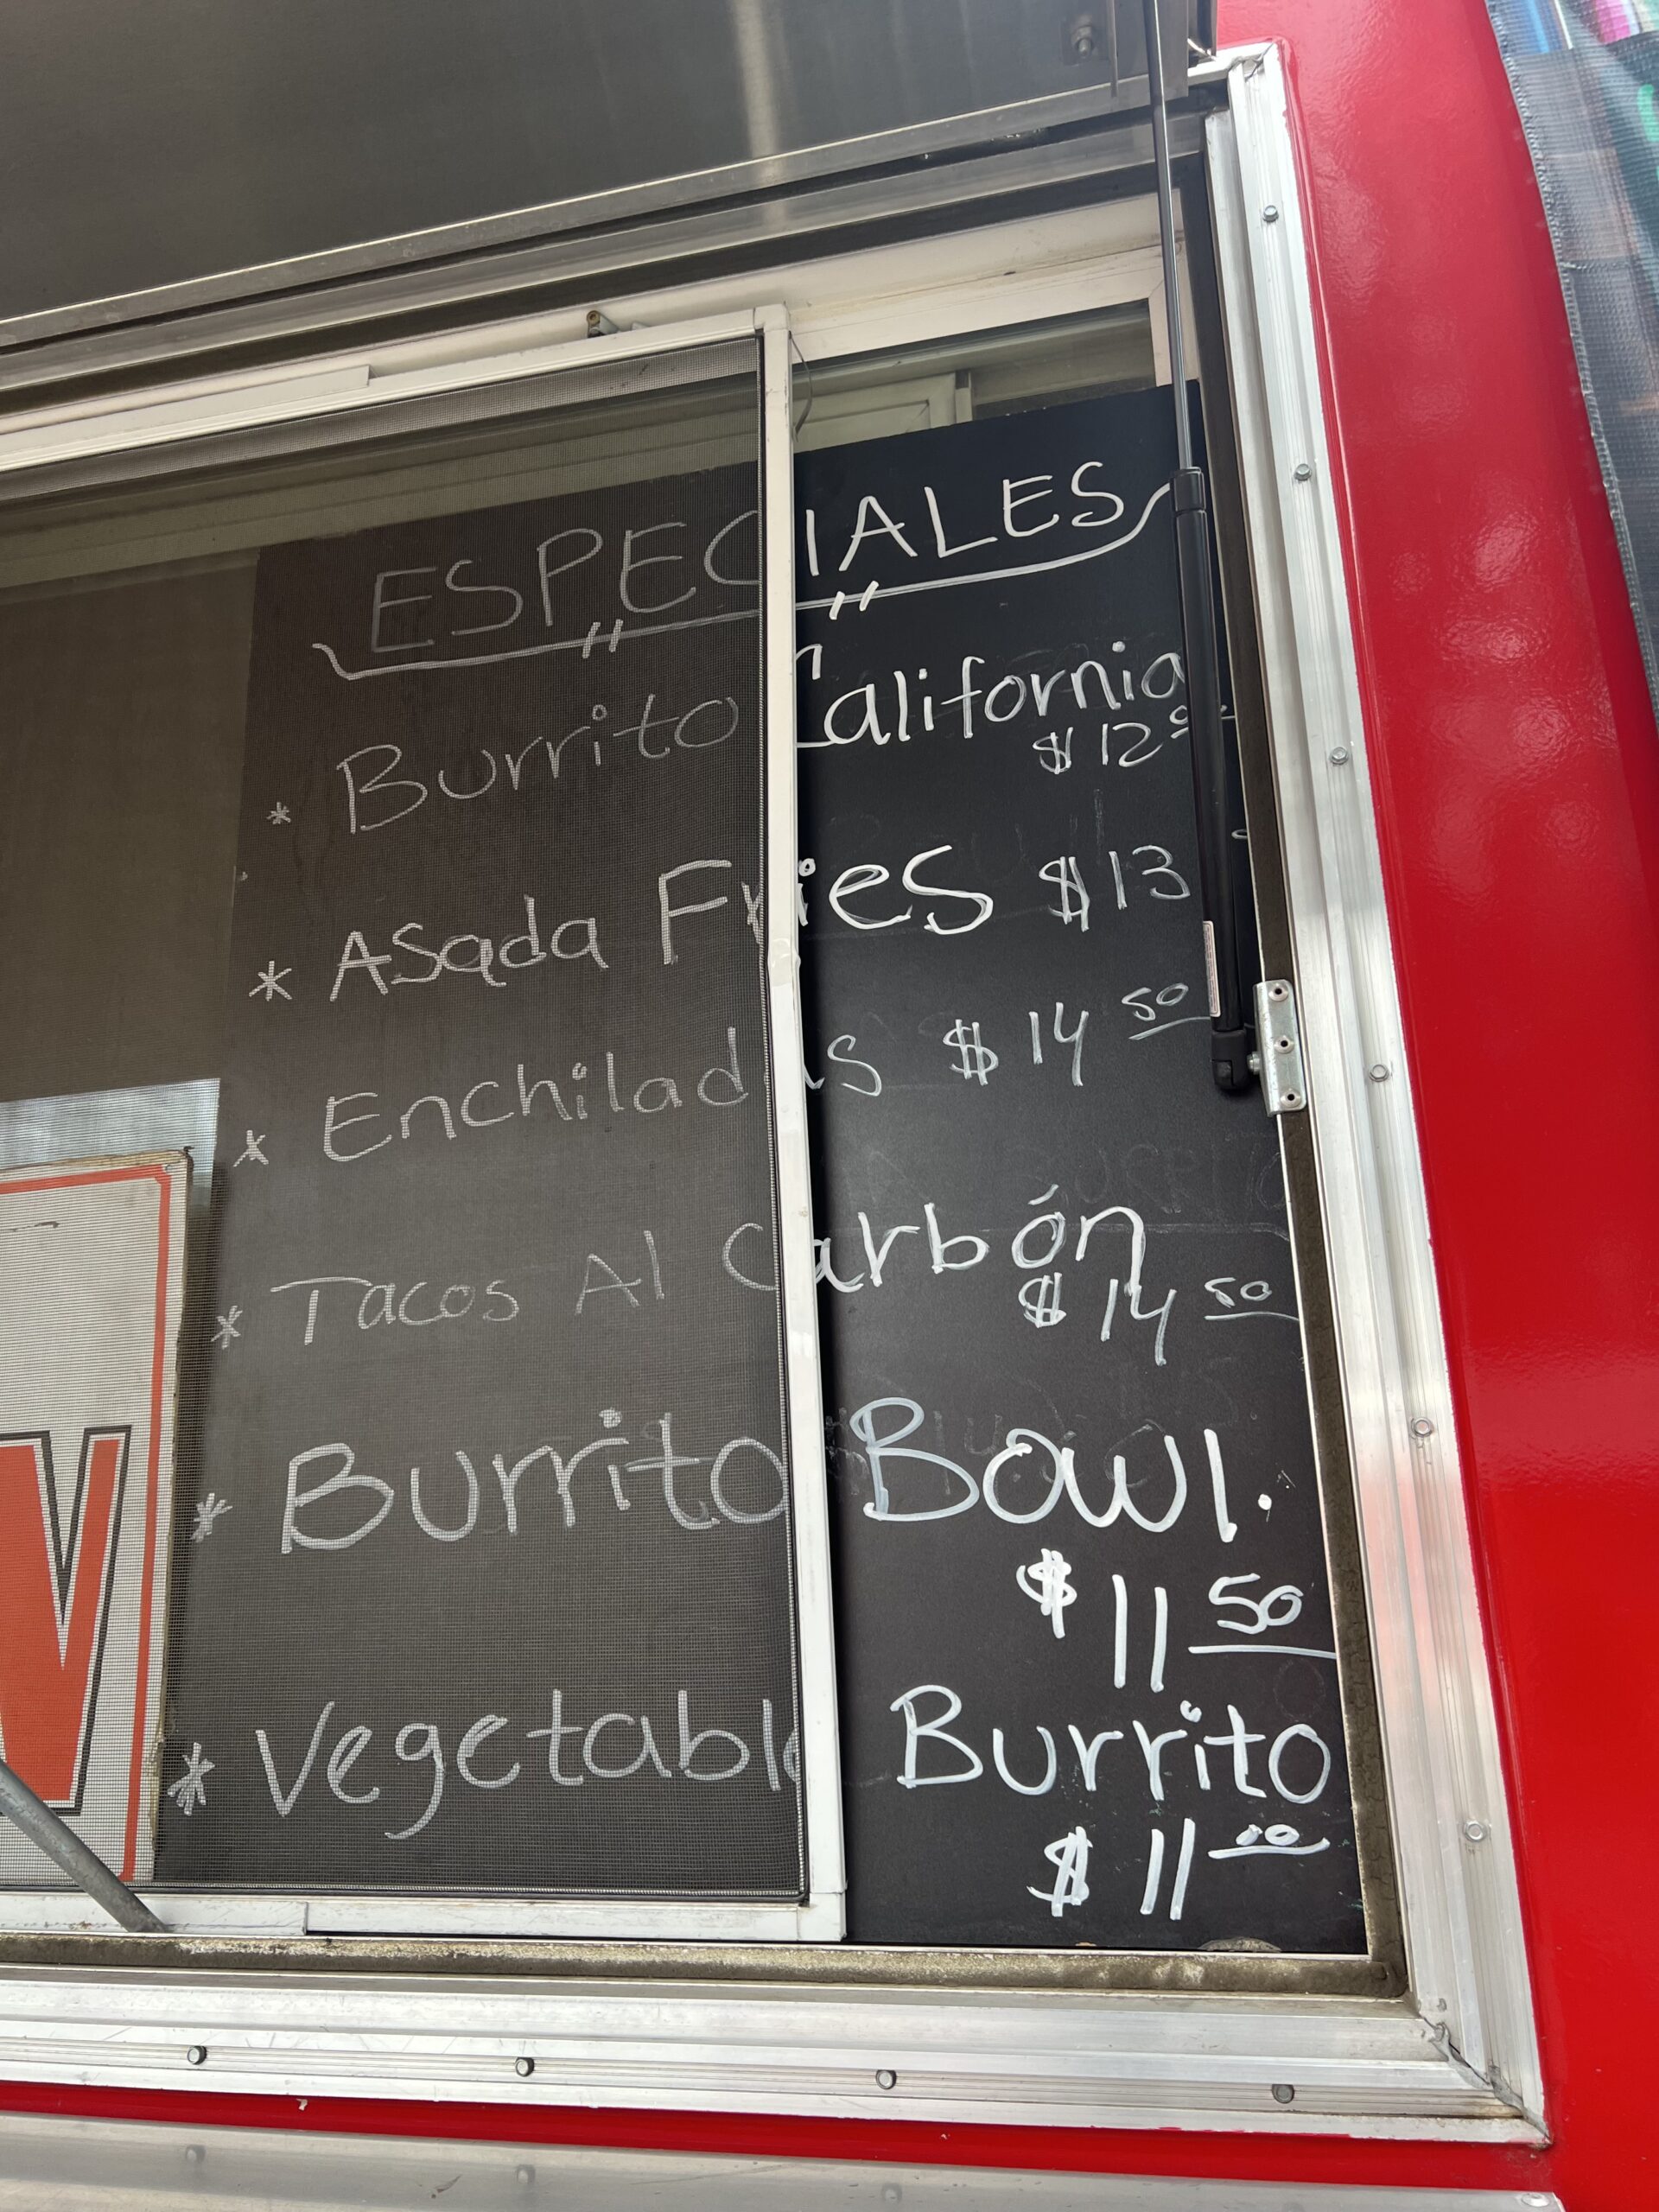 ESPECIALES
* Burrito California
$12
* Asada Fries $13
* Enchiladas $14 50
* Tacos Al Carbón
$14 50
* Burrito Bowl.
$11 50
* Vegetable Burrito
$11 00